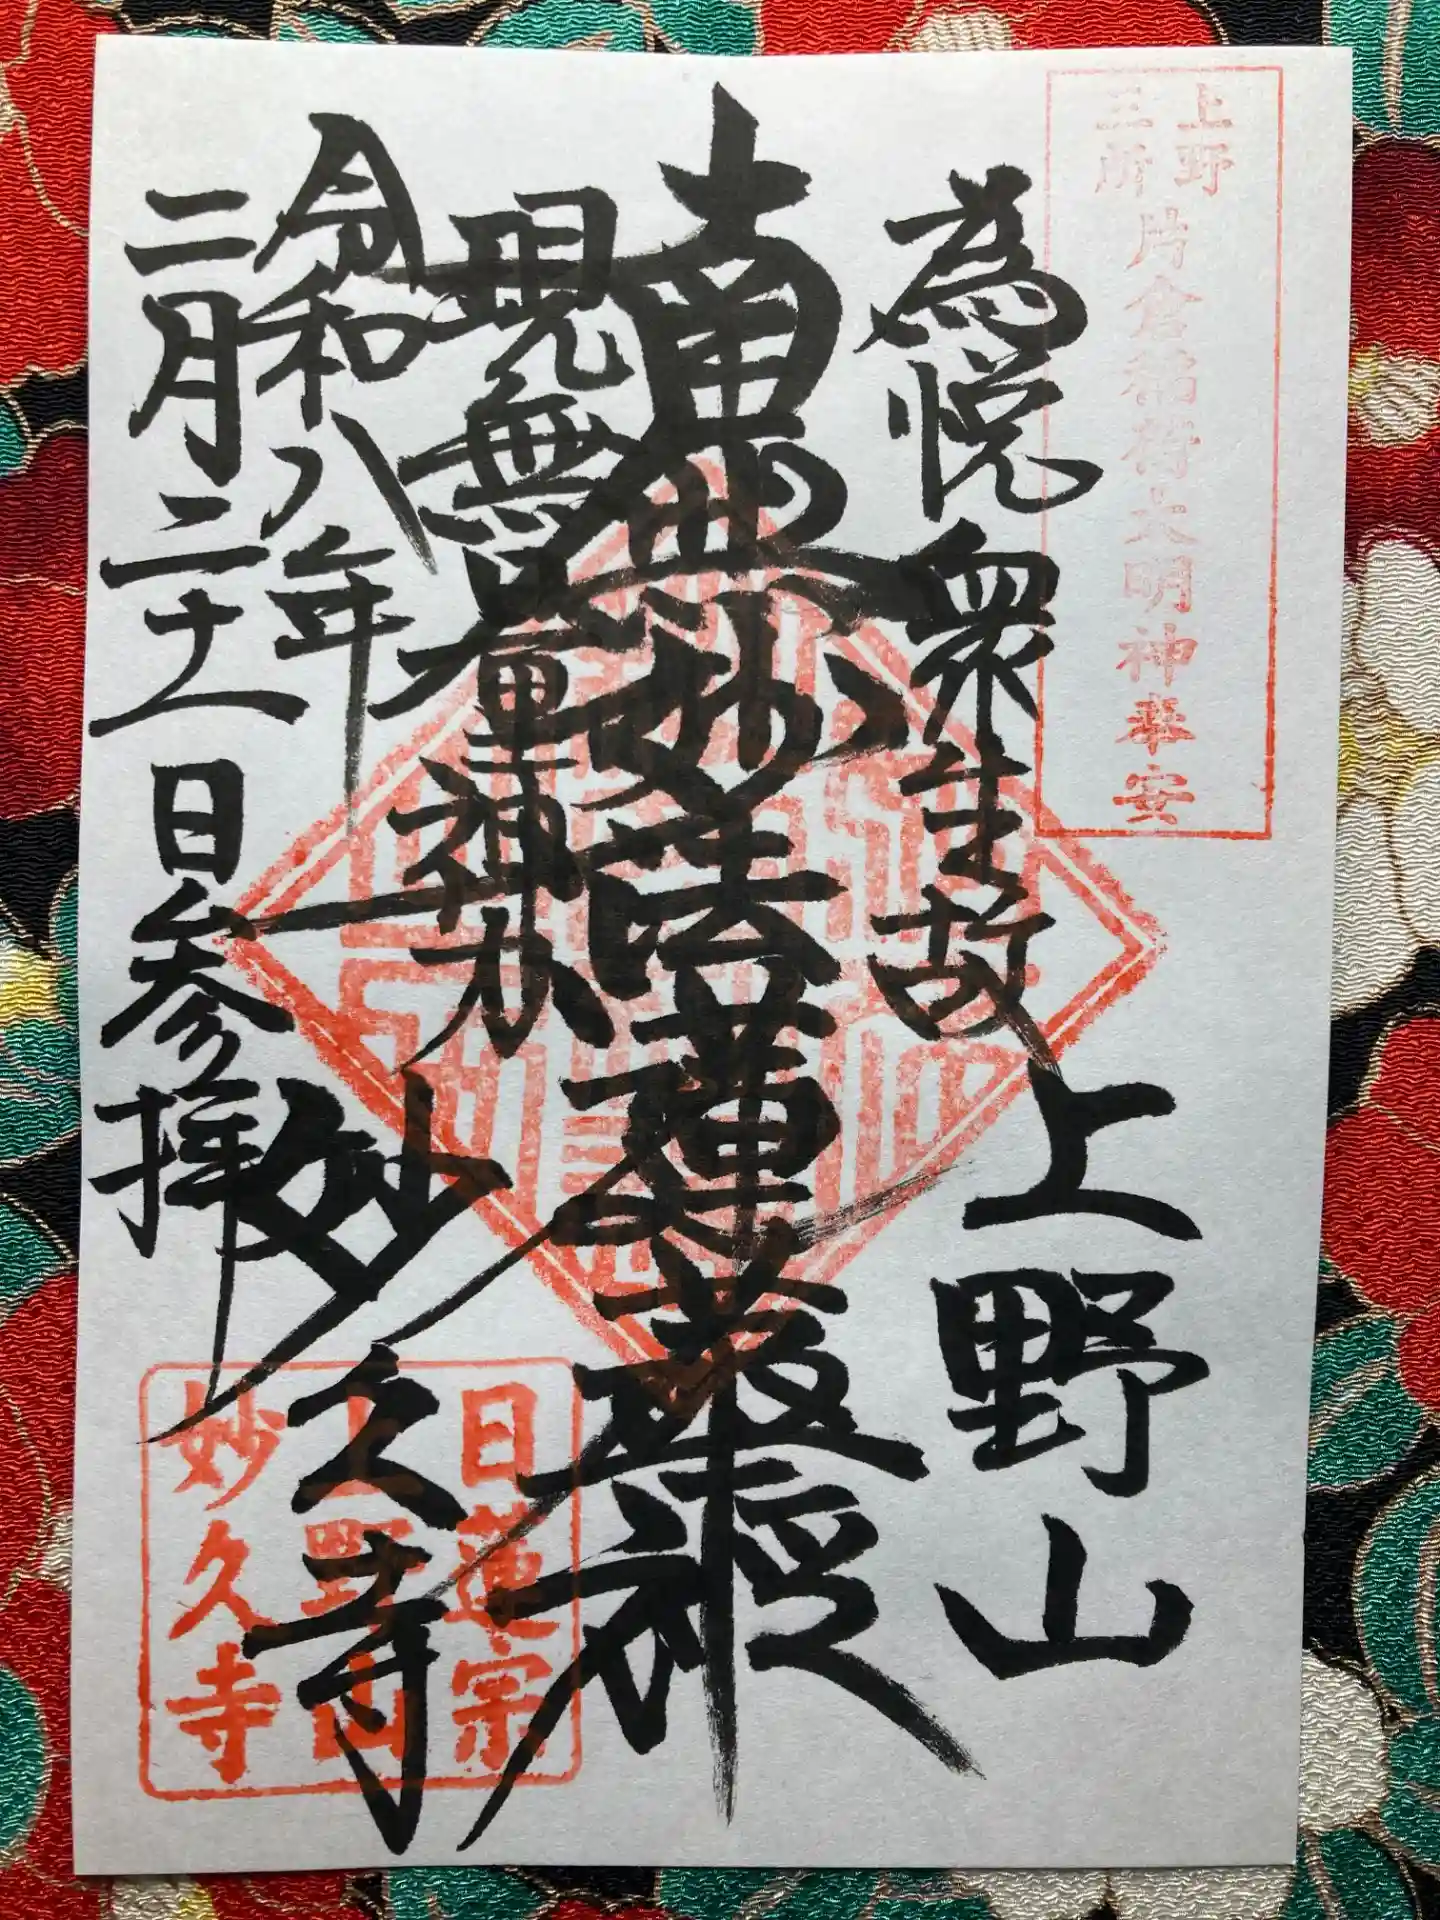 上野
三所
片倉稲荷大明神奉安
為悦衆生故
上野山
南無妙法蓮華経
現無量神力
妙久寺
令和八年
二月二十一日参拝
日蓮宗
上野山
妙久寺